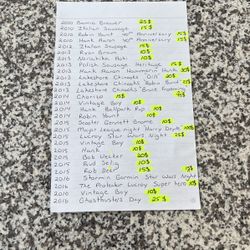 2010 Bernie Brewer 25$
2010 Italian Sausage 15$
2010 Robin Yount 40th Anniversary 15$
2010 Hank Aaron 40th Anniversary 15$
2013 Italian Sausage 15$
2013 Ryan Braun 10$
2013 Norichika Aoki 10$
2013 Polish Sausage Heritage 15$
2013 Hank Aaron Hammerin Hank 20$
2013 Lakeshore Chinooks Gill 20$
2013 Lakeshore Chinooks Robin Yount 10$
2013 Lakeshore Chinooks Bruit
2014 Chorizo 15$
2014 Vintage Boy 10$
2014 Hank Ballpark Pup 10$
2014 Robin Yount 10$
2015 Scooter Gennett Gnome 10$
2015 Major League night Harry Doyle 10$
2015 Lucroy Star Wars Night 25$
2015 Vintage Boy 10$
2015 Hank 10$
2015 Bob Uecker 20$
2015 Bud Selig 10$
2015 Rob Deer 15$
2016 Stormin Gorman Star Wars Night
2016 The Protector Lucroy Super hero 10$
2016 Vintage Boy 10$
2016 Ghostbusters Day 25$